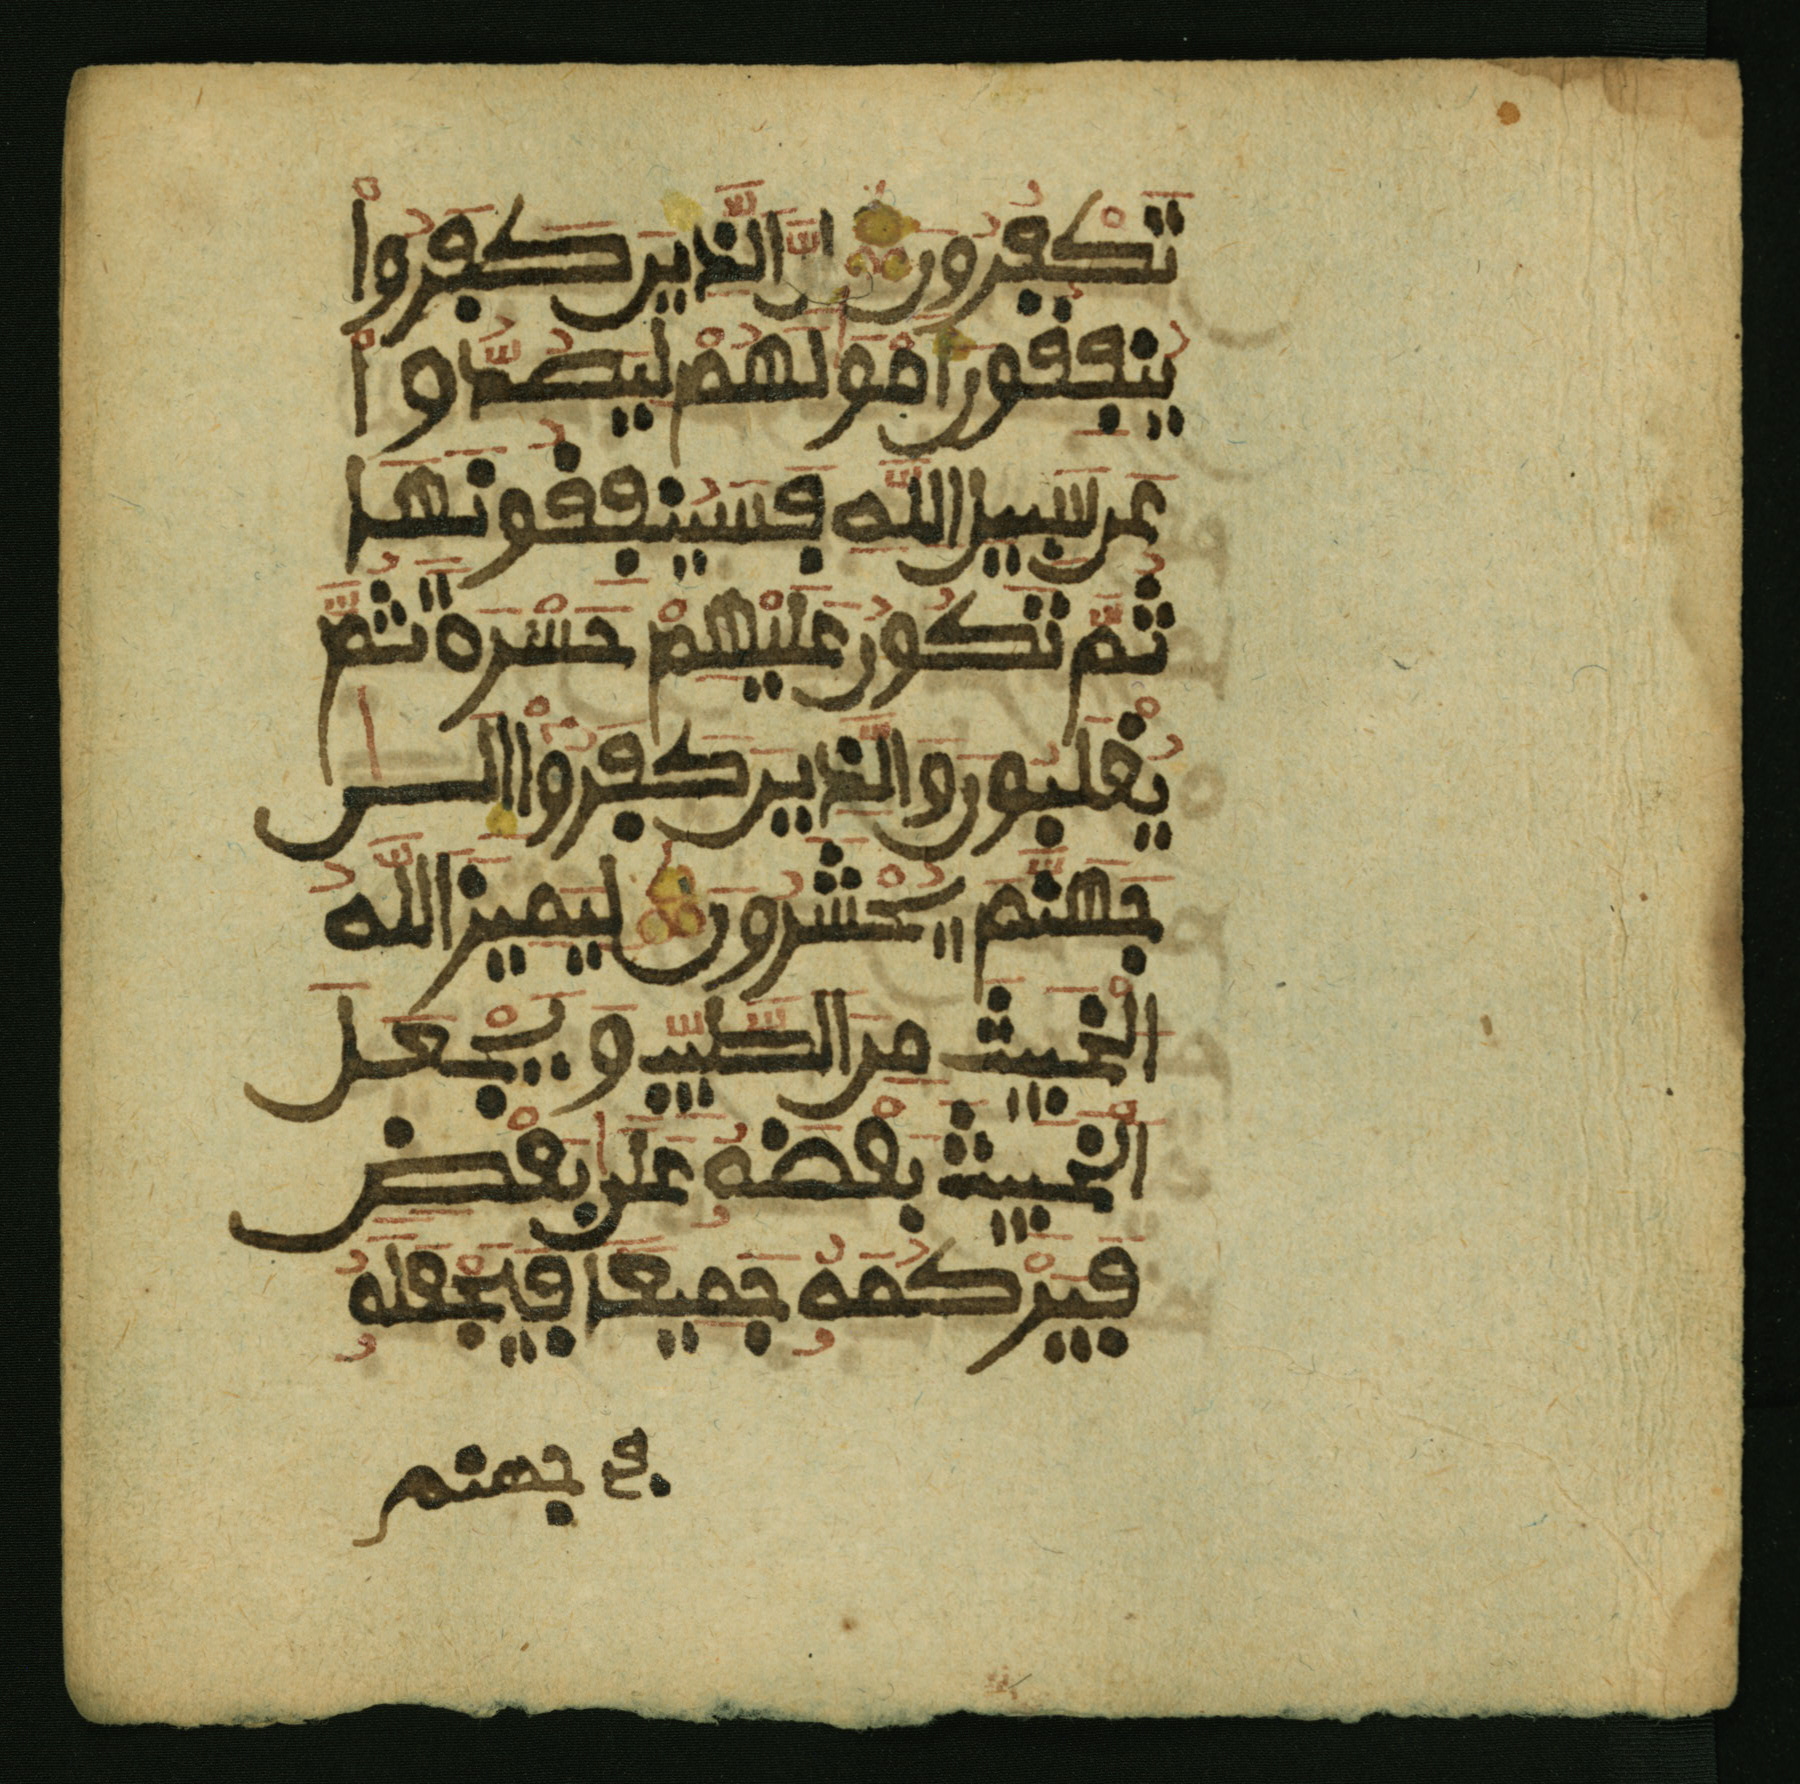 تَكْفُرُونَ إِنَّ الَّذِينَ كَفَرُواْ
يُنفِقُونَ أَمْوَٰلَهُمْ لِيَصُدُّواْ
عَن سَبِيلِ اللَّهِ فَسَيُنفِقُونَهَا
ثُمَّ تَكُونُ عَلَيْهِمْ حَسْرَةً ثُمَّ
يُغْلَبُونَ وَالَّذِينَ كَفَرُواْ إِلَىٰ
جَهَنَّمَ يُحْشَرُونَ لِيَمِيزَ اللَّهُ
الْخَبِيثَ مِنَ الطَّيِّبِ وَيَجْعَلَ
الْخَبِيثَ بَعْضَهُ عَلَىٰ بَعْضٍ
فَيَرْكُمَهُ جَمِيعًا فَيَجْعَلَهُ
في جهنم